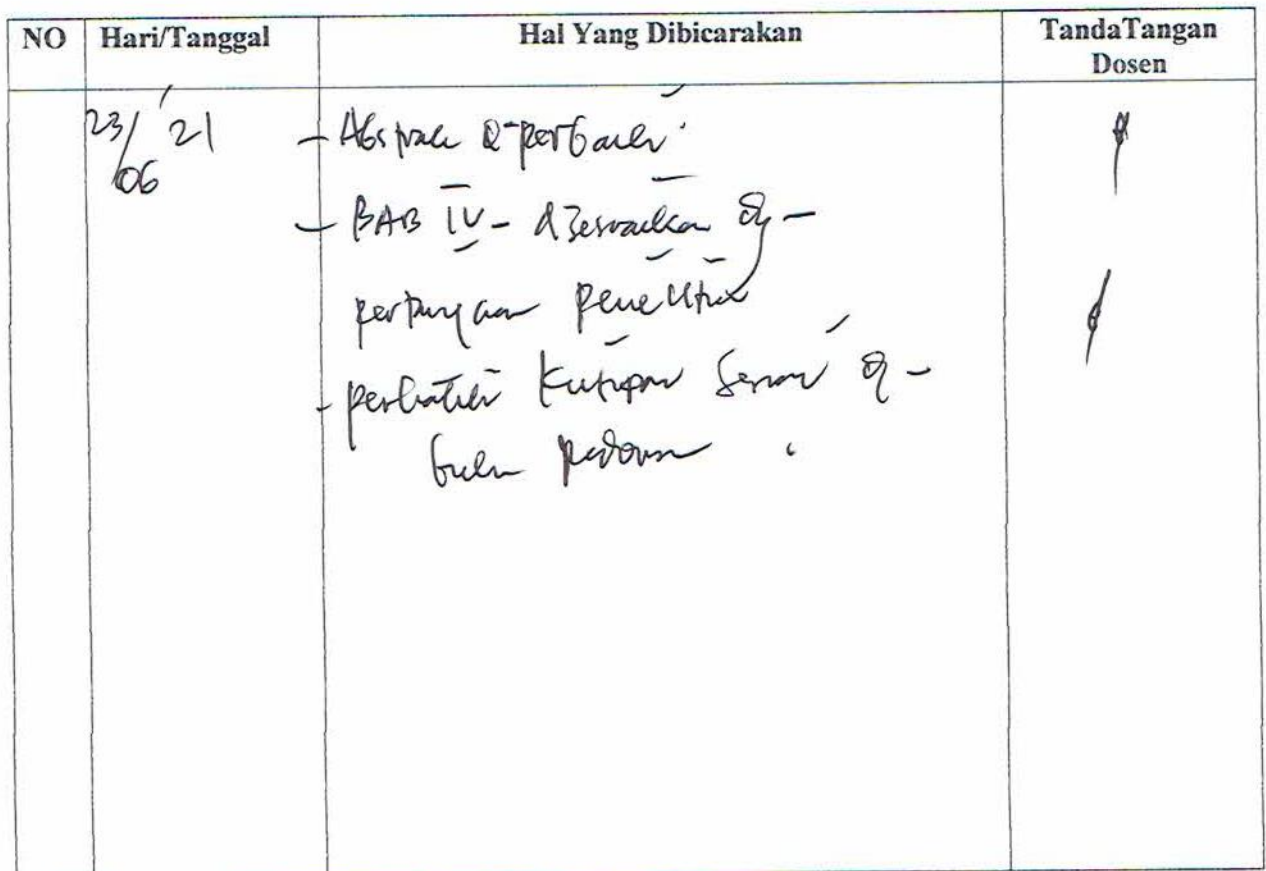 NO Hari/Tanggal Hal Yang Dibicarakan TandaTangan
Dosen
23/06 '21 - Abstrak diperbaiki
- BAB IV - disesuaikan dg -
pertanyaan penelitian
- perbaiki kutipan sesuai dg -
buku pedoman